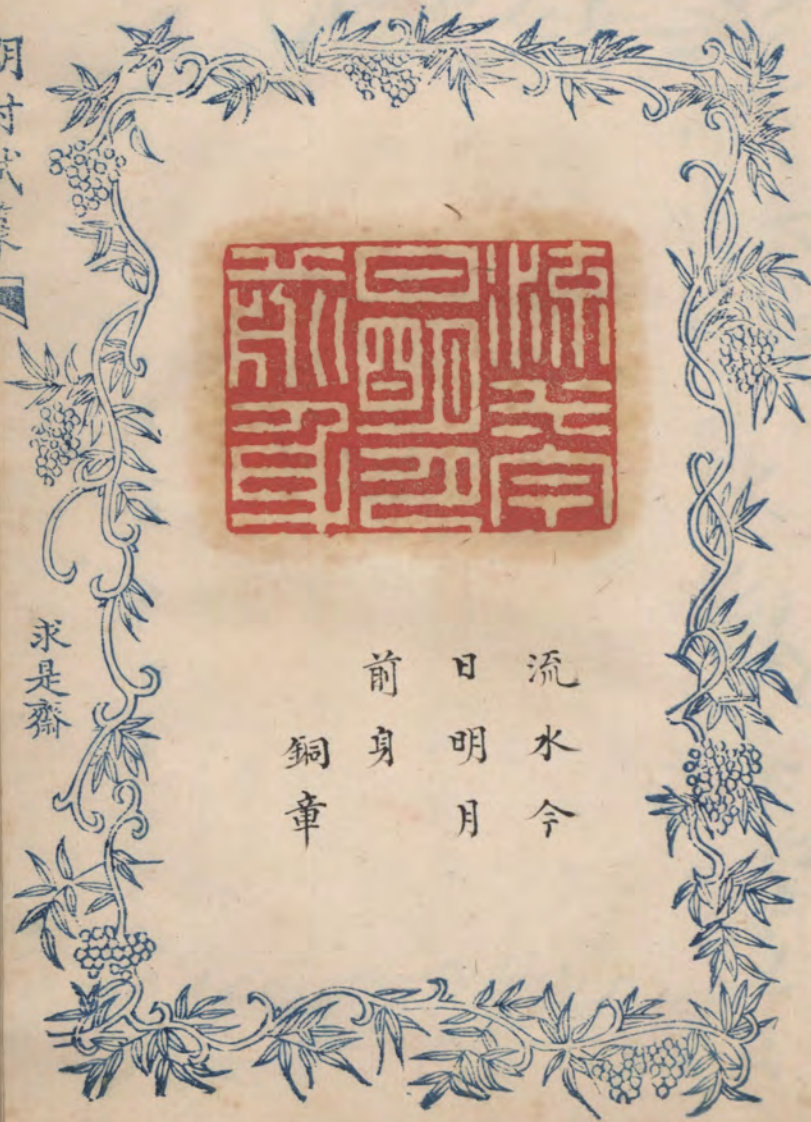 流水今
日明月
前身
流水今
日明月
前身
銅章
求是齋